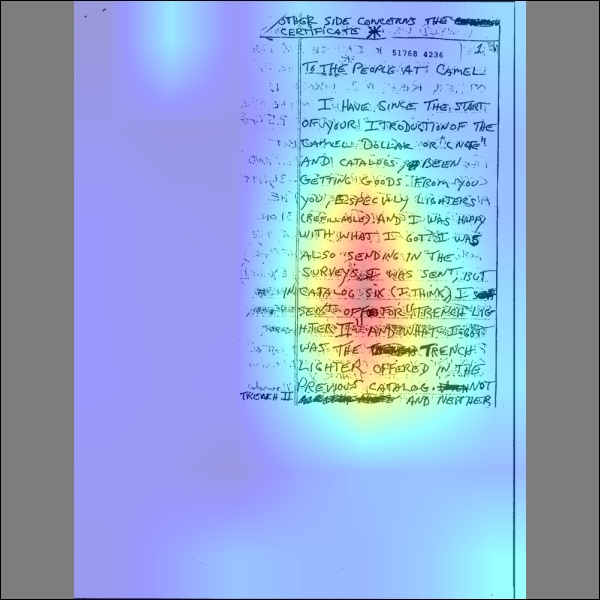 OTHER SIDE CONCERNS THE
CERTIFICATE *
1.
51768 4236
TO THE PEOPLE AT CAMEL
I HAVE SINCE THE START
OF YOUR ITRODUCTION OF THE
CAMEL DOLLAR OR "C NOTE"
AND CATALOGS, BEEN
GETTING GOODS FROM YOU
YOU, ESPECIALLY LIGHTERS
(REFILLABLE) AND I WAS HAPPY
WITH WHAT I GOT. I WAS
ALSO SENDING IN THE
SURVEYS I WAS SENT, BUT
IN CATALOG SIX (I THINK) I
SENT OFF FOR "TRENCH LIG
HTER II" AND WHAT I GOT
WAS THE TRENCH
LIGHTER OFFERED IN THE
PREVIOUS CATALOG. NOT
TRENCH II AND NEITHER